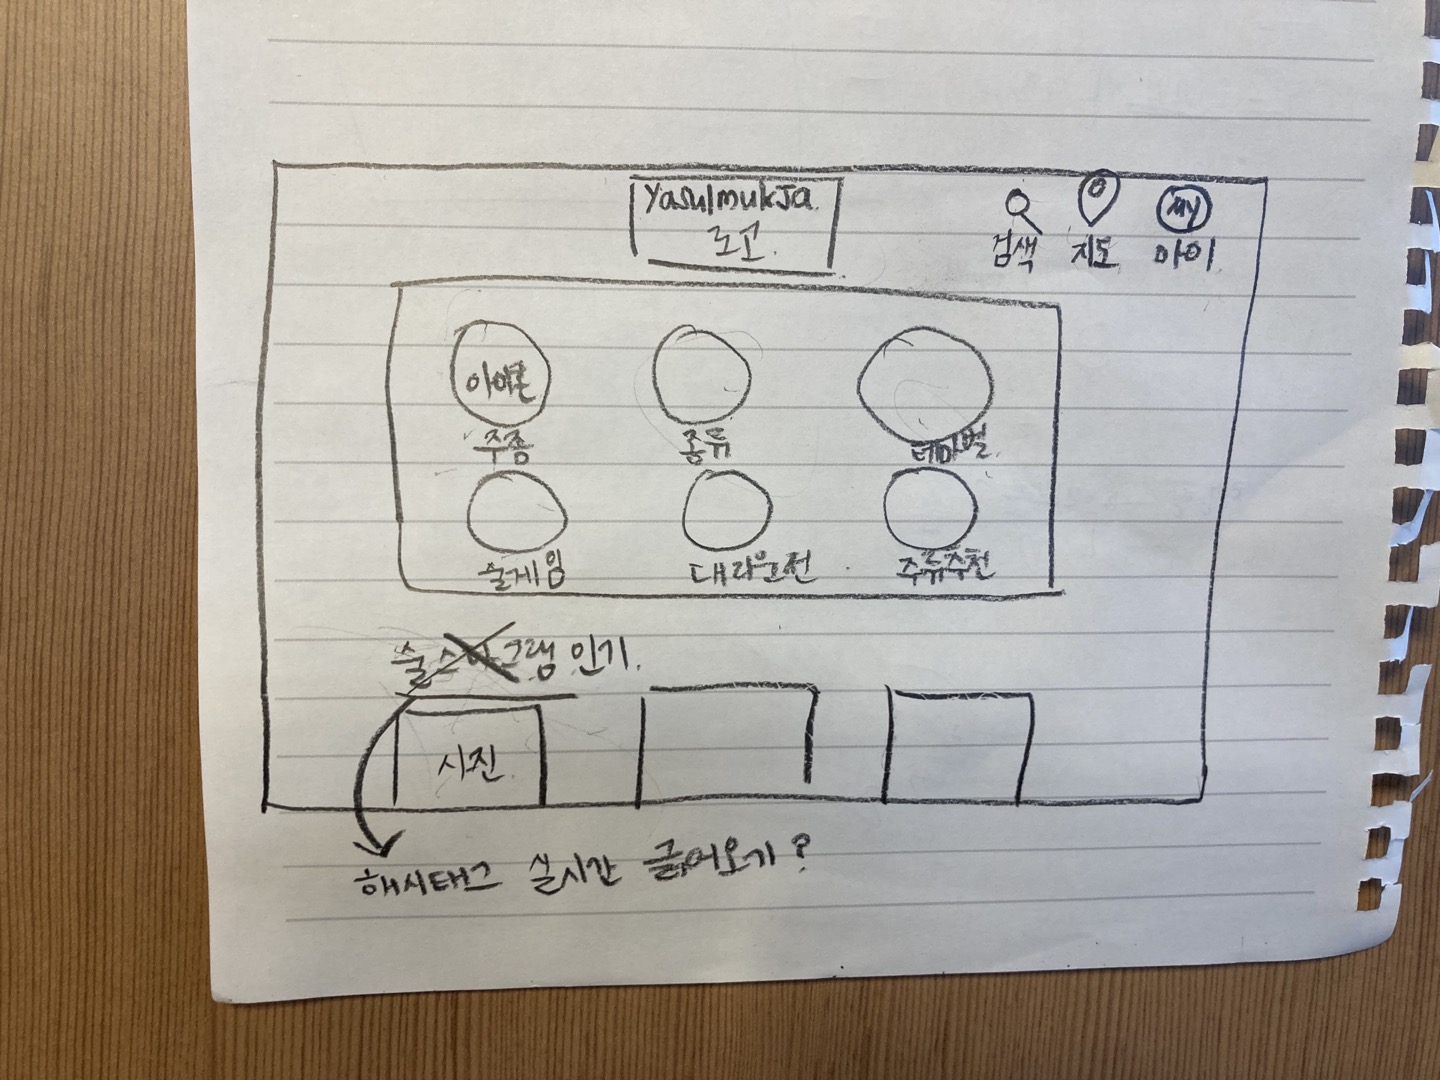 Yasulmukja
로고
검색 지도 마이
MY
아이콘
주종 종류 테마별
술게임 대리운전 주류추천
술스타그램 인기
사진
해시태그 실시간 긁어오기?